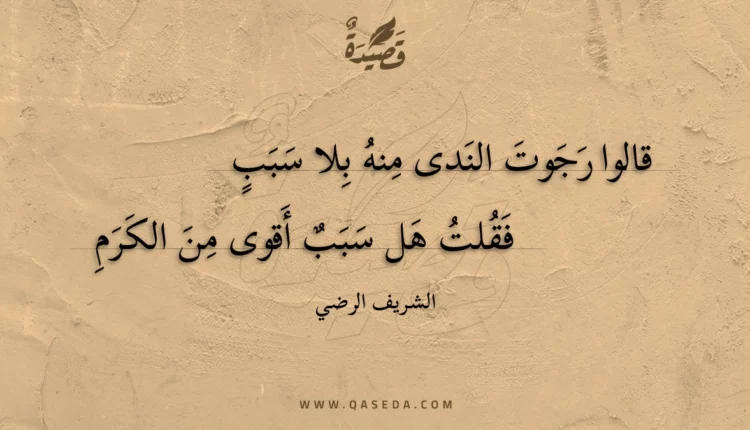 قَصِيدَةٌ
قالوا رَجَوتَ النَدى مِنهُ بِلا سَبَبٍ
فَقُلتُ هَل سَبَبٌ أَقوى مِنَ الكَرَمِ
الشريف الرضي
WWW.QASEDA.COM